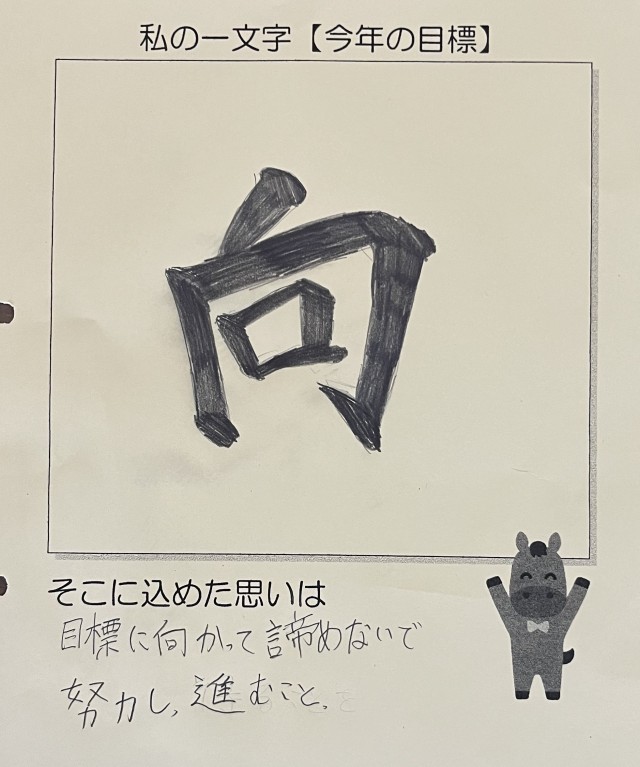 私の一文字【今年の目標】
向
そこに込めた思いは
目標に向かって諦めないで
努力し、進むこと。